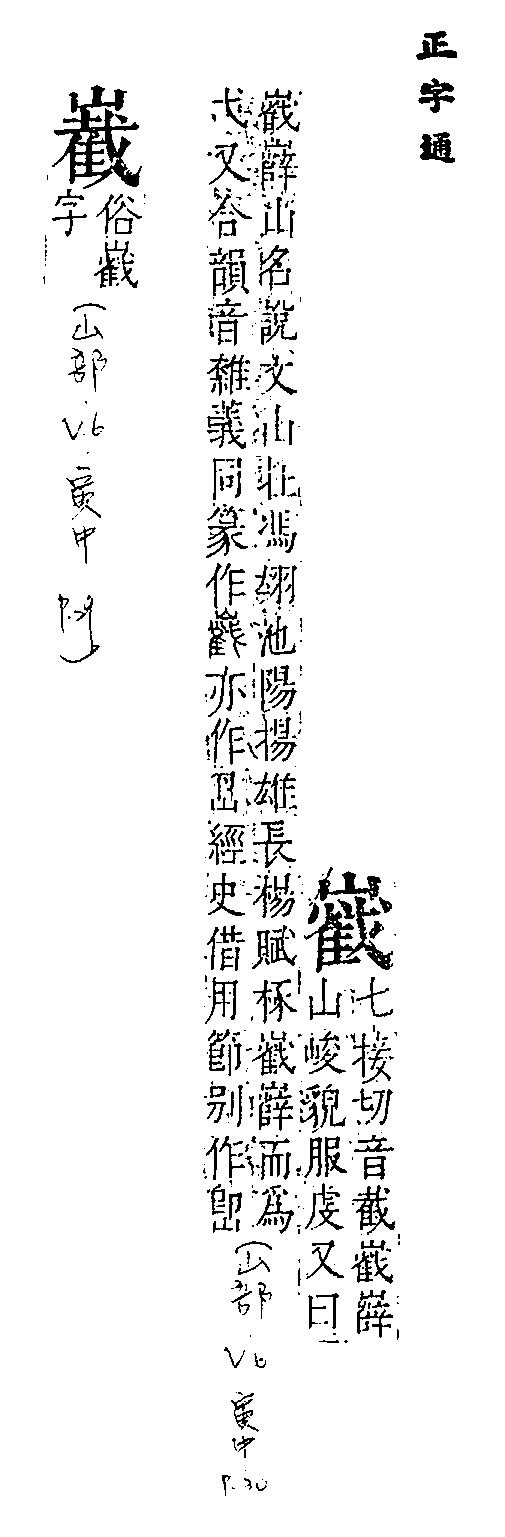 正字通
七接切音截嶻嶭
山峻貌服虔又曰
嶻嶭山名說文山在馮翊池陽揚雄長楊賦椓嶻嶭而爲
弋又答韻音雜義同篆作亦作經史借用節別作
(山部 V.6 寅中 P.30
俗嶻
字
(山部 V.6 寅中 P.29)